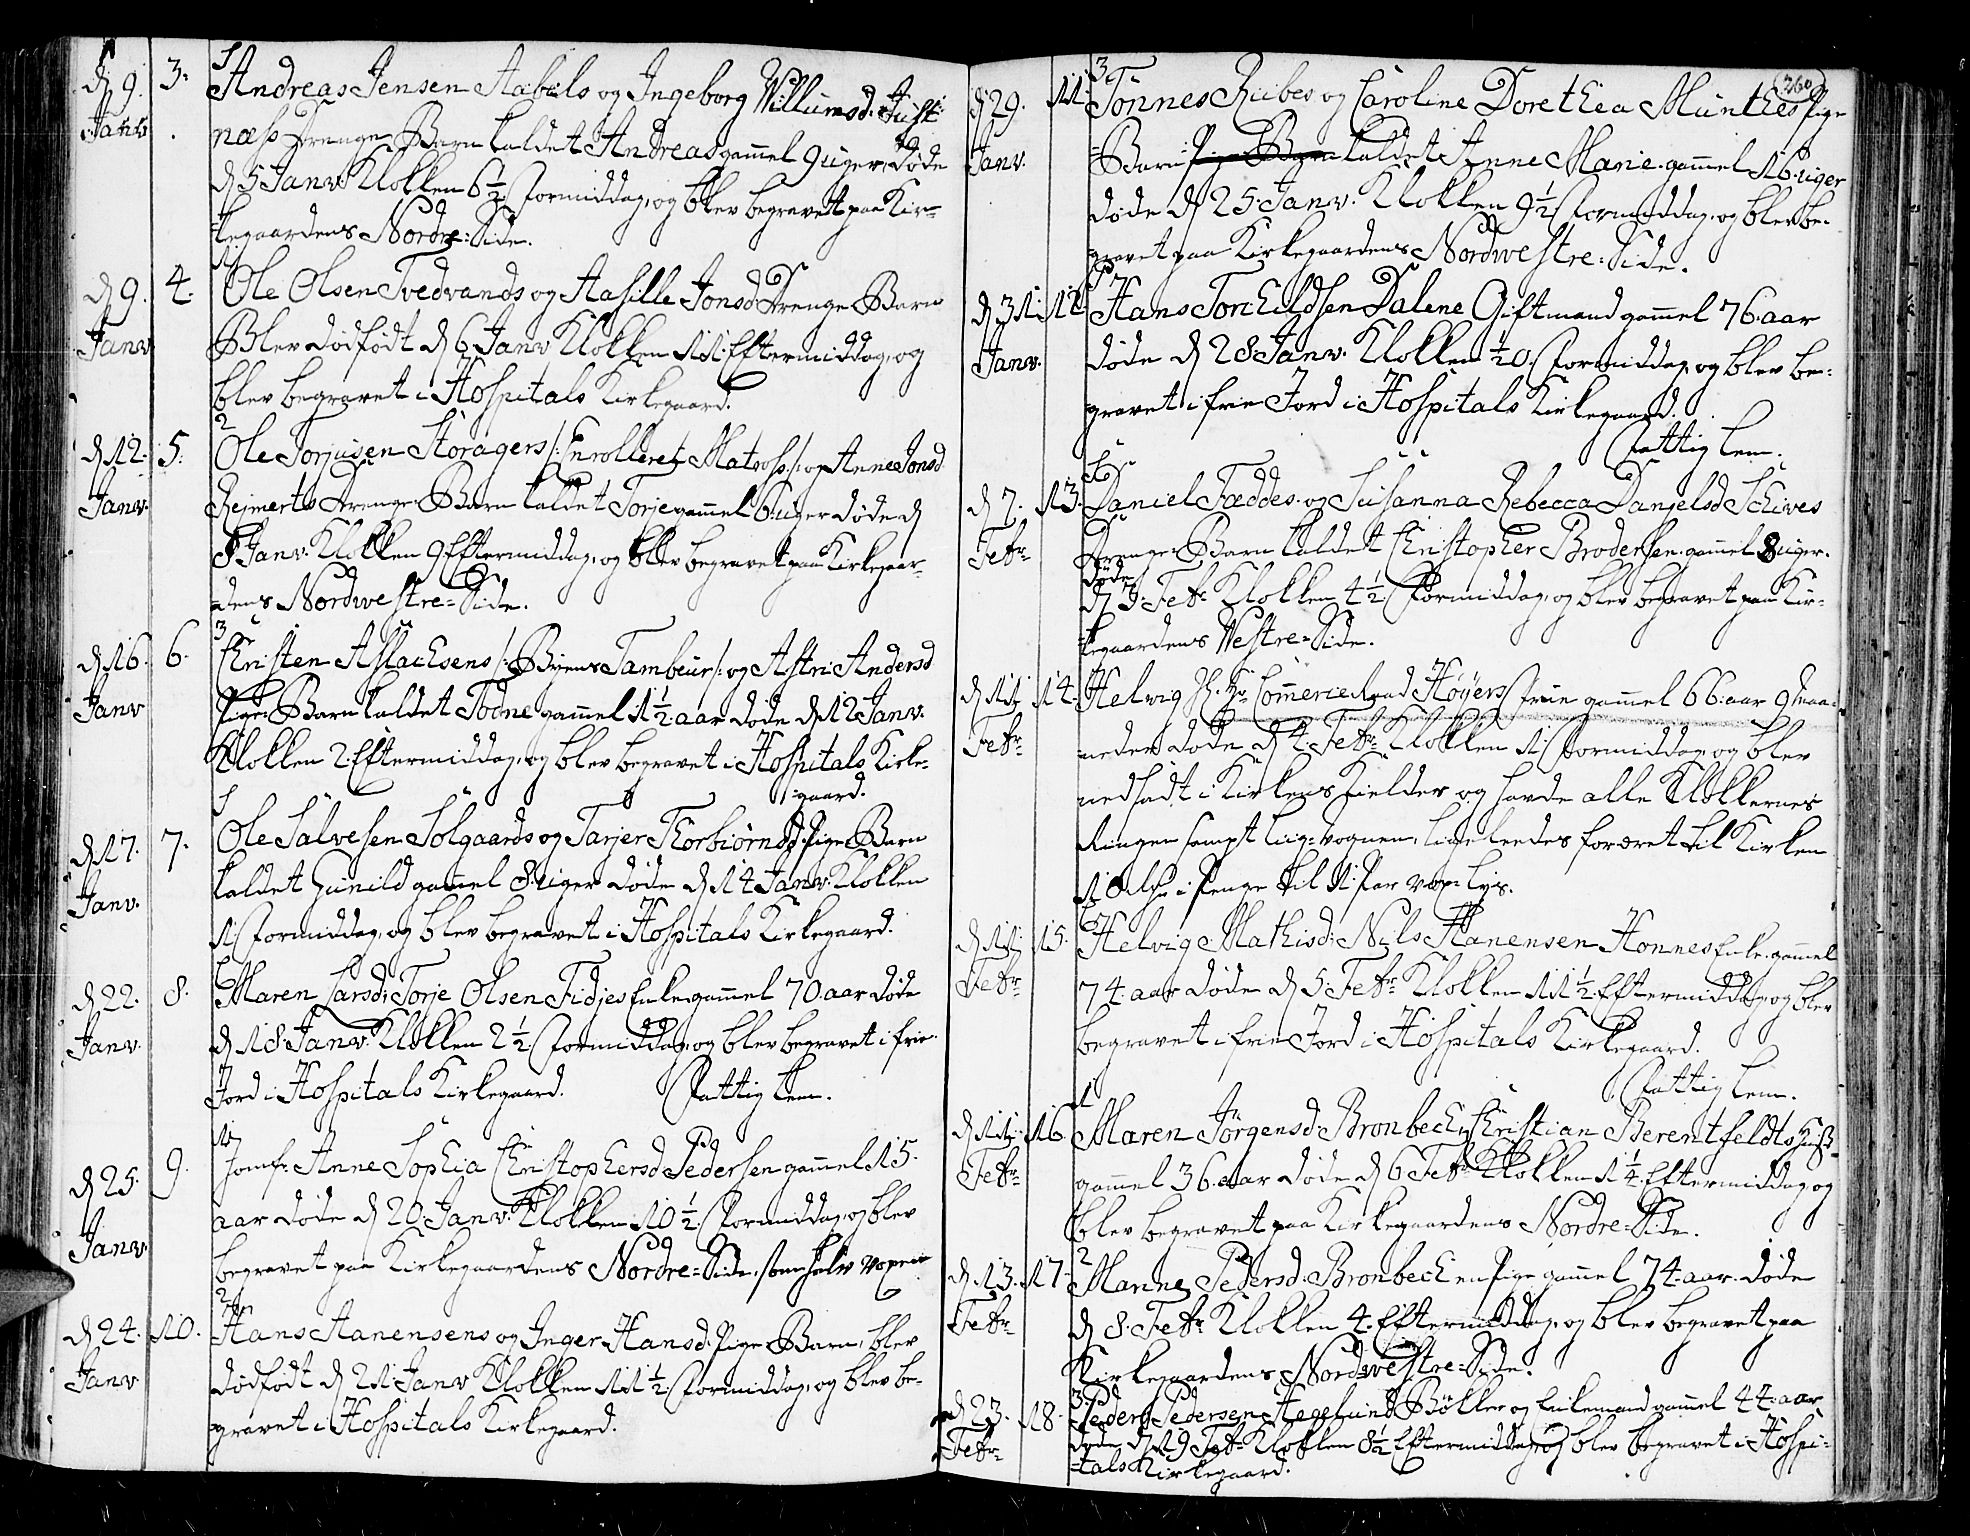 d 9. 3. Andreas Jensen Aabels og Ingeborg Willumsd. Just-
Janv. næss Drenge Barn kaldet Andreas gamel 9 uger, døde
d 5 Janv. Klokken 6 1/2 Formiddag, og blev begravet paa Kir-
kegaardens Nordre-Side.
d 9. 4. Ole Olsen Tvedvands og Aasille Jonsd Drenge Barn
Janv. Blev dødfødt d 6 Janv Klokken 11 Eftermiddag, og
blev begravet i Hospitals Kirkegaard.
d 12. 5. Ole Torjusen Storagers /: Enrolleret Matross :/ og Anne Jonsd
Janv. Rejmerts Drenge Barn kaldet Torje gamel 6 uger døde d
8 Janv. Klokken 9 Eftermiddag, og blev begravet paa Kirkegaar-
dens Nordwestre-Side.
d 16. 6. Christen Aslachsens /: Byens Tambeur :/ og Astri Andersd
Janv Pige Barn kaldet Todne gamel 1 1/2 aar døde d 12 Janv.
Klokken 2 Eftermiddag, og blev begravet i Hospitals Kirke-
gaard.
d 17. 7. Ole Salvesen Solgaards og Tarjer Thorbiørnsd. Pige Barn
Janv. kaldet Gunild gamel 8 uger døde d 14 Janv. Klokken
1 Formiddag, og blev begravet i Hospitals Kirkegaard.
d 22. 8. Maren Larsd: Torje Olsen Fidjes Enke gamel 70 aar døde
Janv. d 18. Janv. Klokken 2 1/2 Formiddag, og blev begravet i frie
Jord i Hospitals Kirkegaard. Fattig Lem.
d 25. 9. Jomfr. Anne Sophia Christophersd Pedersen gamel 15.
Janv. aar døde d 20. Janv. Klokken 10 1/2 Formiddag, og blev
begravet paa Kirkegaardens Nordre-Side, som halv voxen
d 24. 10. Hans Hanensens og Inger Hansd. Pige Barn, blev
Janv dødfødt d 21 Janv Klokken 11 1/2 Formiddag, og blev be-
gravet i Hospitals Kirkegaard.
260
d 29. 11. Tønnes Ribes og Caroline Dorethea Munthes Pige
Janv. Barn Pige Barn kaldet Anne Marie gamel 16 uger
døde d 25. Janv. Klokken 9 1/2 Formiddag, og blev be-
gravet paa Kirkegaardens Nordwestre-Side.
d 31. 12. Hans Torkildsen Dalene Giftmand gamel 76 aar
Janv. døde d 28 Janv. Klokken 1/2 0 Formiddag, og blev be-
gravet i frie Jord i Hospitals Kirkegaard.
Fattig Lem.
d 7. 13. Daniel Fæddes og Susanna Rebecca Danjelsd Schives
Febr. Drenge Barn kaldet Christopher Brodersen gamel 8 uger.
døde
d 3. Febr. Klokken 4 1/2 Formiddag, og blev begravet paa Kir-
kegaardens Westre-Side.
d 11. 14. Helvig Hr. Commerceraad Høyers Frue gamel 66 aar 9 Maa-
Febr. neder døde d 4. Febr. Klokken 1 Formiddag, og blev
nedsadt i Kirkens Kielder og havde alle Klokkernes
Ringen sampt Liig-vognen, ligeleedes foræret til Kirken
10 Rdr. i Penge til 1 Par vox-Lys.
d 11. 15. Helvig Mathisd: Nils Hanensen Honnes Enke gamel
Febr. 74 aar døde d 5. Febr. Klokken 11 1/2 Eftermiddag, og blev
begravet i frie Jord i Hospitals Kirkegaard.
Fattig Lem.
d 11. 16. Maren Jørgensd: Bronbech, Christian Berentfeldts
Febr. gamel 36 aar døde d 6 Febr. Klokken 1 1/4 Eftermiddag, og
blev begravet paa Kirkegaardens Nordre-Side.
d 13. 17. Marine Pedersd. Bronbech en Pige gamel 74 aar døde
Febr. d 8. Febr. Klokken 4. Eftermiddag, og blev begravet paa
Kirkegaardens Nordwestre-Side.
d 23. 18. Peder Pedersen Hegelund Bøkker og Enkemand gamel 44 aar
Febr. døde d 19 Febr. Klokken 8 1/2 Eftermiddag, og blev begravet i Hospi-
tals Kirkegaard.